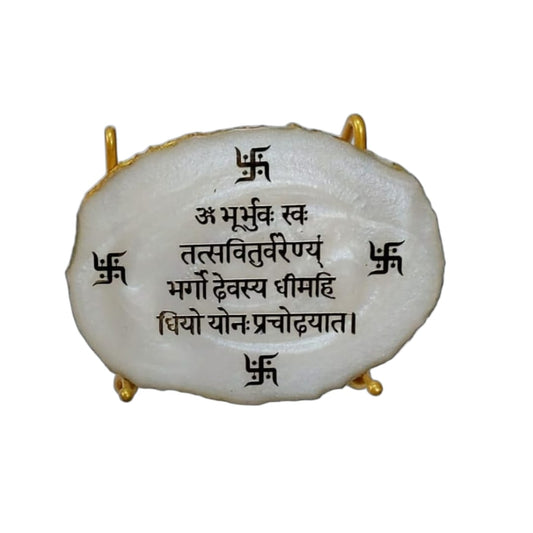 ॐ भूर्भुवः स्वः
तत्सवितुर्वरेण्यं
भर्गो देवस्य धीमहि
धियो योनः प्रचोदयात।